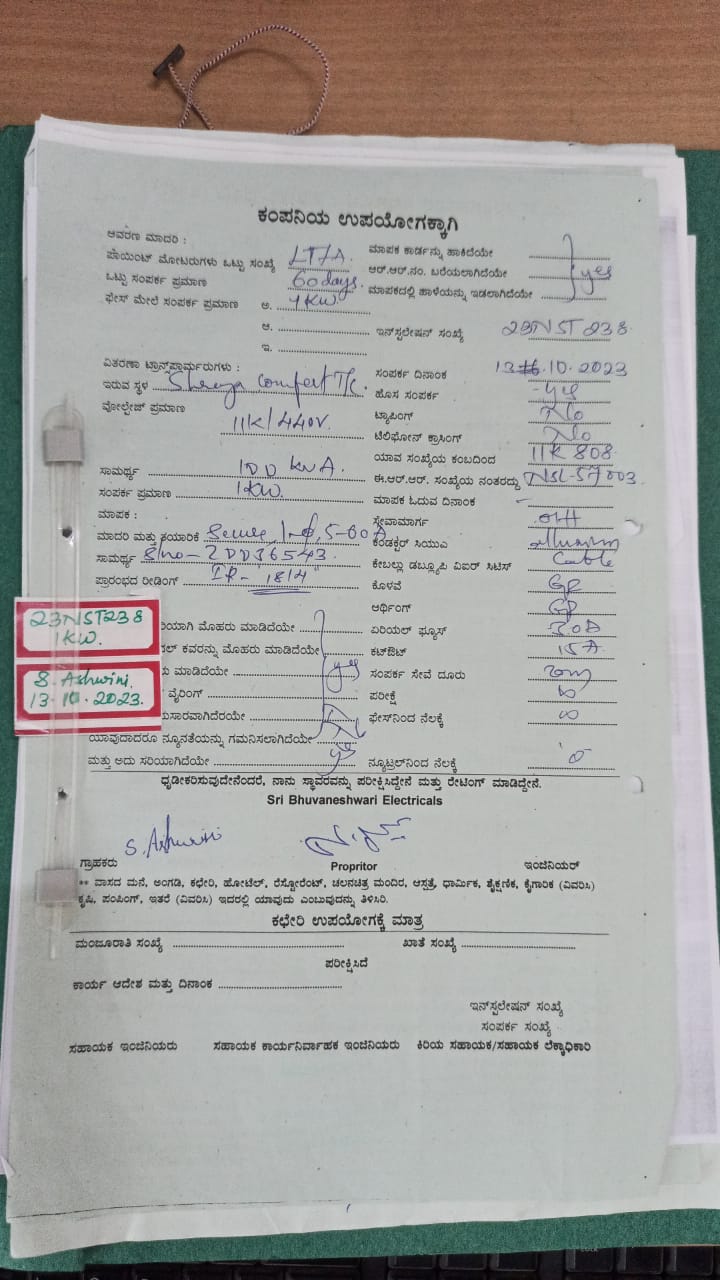 ಕಂಪನಿಯ ಉಪಯೋಗಕ್ಕಾಗಿ
ಆವರಣ ಮಾದರಿ :
ಪಾಯಿಂಟ್ ಮೋಟರುಗಳು ಒಟ್ಟು ಸಂಖ್ಯೆ LT/A. ಮಾಪಕ ಕಾರ್ಡನ್ನು ಹಾಕಿದೆಯೇ
ಒಟ್ಟು ಸಂಪರ್ಕ ಪ್ರಮಾಣ 60 days. ಆರ್.ಆರ್.ನಂ. ಬರೆಯಲಾಗಿದೆಯೇ yes
ಫೇಸ್ ಮೇಲೆ ಸಂಪರ್ಕ ಪ್ರಮಾಣ ಅ. 1KW. ಮಾಪಕದಲ್ಲಿ ಹಾಳೆಯನ್ನು ಇಡಲಾಗಿದೆಯೇ
ಆ. ಇನ್‌ಸ್ಟಲೇಷನ್ ಸಂಖ್ಯೆ 23NST238.
ಇ.
ವಿತರಣಾ ಟ್ರಾನ್ಸ್‌ಫಾರ್ಮರುಗಳು : ಸಂಪರ್ಕ ದಿನಾಂಕ 13.10.2023
ಇರುವ ಸ್ಥಳ Shreya Comfert T/c. ಹೊಸ ಸಂಪರ್ಕ yes
ವೋಲ್ಟೇಜ್ ಪ್ರಮಾಣ 11K/440V. ಟ್ಯಾಪಿಂಗ್ No
ಟೆಲಿಫೋನ್ ಕ್ರಾಸಿಂಗ್ No
ಯಾವ ಸಂಖ್ಯೆಯ ಕಂಬದಿಂದ 11K 808.
ಸಾಮರ್ಥ್ಯ 100 KVA. ಈ.ಆರ್.ಆರ್. ಸಂಖ್ಯೆಯ ನಂತರದ್ದು NSL-57003.
ಸಂಪರ್ಕ ಪ್ರಮಾಣ 1KW. ಮಾಪಕ ಓದುವ ದಿನಾಂಕ -
ಮಾಪಕ : ಸ್ವೇವಾಮಾರ್ಗ OH
ಮಾದರಿ ಮತ್ತು ತಯಾರಿಕೆ Secure, 1-ф, 5-60A ಕಂಡಕ್ಟರ್ ಸಿಯುಎ
ಸಾಮರ್ಥ್ಯ S/no-2DD36543 ಕೇಬಲ್ಲು ಡಬ್ಲ್ಯೂಪಿ ವಿಐರ್ ಸಿಟಿಸ್ Cable
ಪ್ರಾರಂಭದ ರೀಡಿಂಗ್ IR- "18/4" ಕೊಳವೆ GP
ಆರ್ಥಿಂಗ್ GP
23NST238
1KW.
S. Ashwini.
13.10.2023.
ಯಾಗಿ ಮೊಹರು ಮಾಡಿದೆಯೇ ಏರಿಯಲ್ ಫ್ಯೂಸ್ 30A
ಕವರನ್ನು ಮೊಹರು ಮಾಡಿದೆಯೇ ಕಟ್‌ಔಟ್ 15A
ಮಾಡಿದೆಯೇ yes ಸಂಪರ್ಕ ಸೇವೆ ದೂರು 20m
ವೈರಿಂಗ್ ಪರೀಕ್ಷೆ ∞
ಸಾರವಾಗಿದೆರಯೇ ಫೇಸ್‌ನಿಂದ ನೆಲಕ್ಕೆ ∞
ಯಾವುದಾದರೂ ನ್ಯೂನತೆಯನ್ನು ಗಮನಿಸಲಾಗಿದೆಯೇ No
ಮತ್ತು ಅದು ಸರಿಯಾಗಿದೆಯೇ yes ನ್ಯೂಟ್ರಲ್‌ನಿಂದ ನೆಲಕ್ಕೆ 'o'
ಧೃಡೀಕರಿಸುವುದೇನೆಂದರೆ, ನಾನು ಸ್ಥಾವರವನ್ನು ಪರೀಕ್ಷಿಸಿದ್ದೇನೆ ಮತ್ತು ರೇಟಿಂಗ್ ಮಾಡಿದ್ದೇನೆ.
Sri Bhuvaneshwari Electricals
S. Ashwini
ಗ್ರಾಹಕರು Propritor ಇಂಜಿನಿಯರ್
** ವಾಸದ ಮನೆ, ಅಂಗಡಿ, ಕಛೇರಿ, ಹೋಟೆಲ್, ರೆಸ್ಟೋರೆಂಟ್, ಚಲನಚಿತ್ರ ಮಂದಿರ, ಆಸ್ಪತ್ರೆ, ಧಾರ್ಮಿಕ, ಶೈಕ್ಷಣಿಕ, ಕೈಗಾರಿಕ (ವಿವರಿಸಿ)
ಕೃಷಿ, ಪಂಪಿಂಗ್, ಇತರೆ (ವಿವರಿಸಿ) ಇದರಲ್ಲಿ ಯಾವುದು ಎಂಬುವುದನ್ನು ತಿಳಿಸಿರಿ.
ಕಛೇರಿ ಉಪಯೋಗಕ್ಕೆ ಮಾತ್ರ
ಮಂಜೂರಾತಿ ಸಂಖ್ಯೆ ಖಾತೆ ಸಂಖ್ಯೆ
ಪರೀಕ್ಷಿಸಿದೆ
ಕಾರ್ಯ ಆದೇಶ ಮತ್ತು ದಿನಾಂಕ
ಇನ್‌ಸ್ಟಲೇಷನ್ ಸಂಖ್ಯೆ
ಸಂಪರ್ಕ ಸಂಖ್ಯೆ
ಸಹಾಯಕ ಇಂಜಿನಿಯರು ಸಹಾಯಕ ಕಾರ್ಯನಿರ್ವಾಹಕ ಇಂಜಿನಿಯರು ಕಿರಿಯ ಸಹಾಯಕ/ಸಹಾಯಕ ಲೆಕ್ಕಾಧಿಕಾರಿ